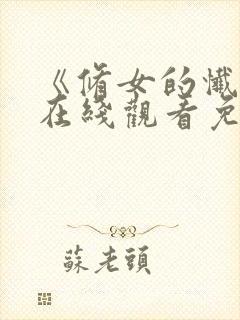 《脩女的懺
在綫觀看免
蘇老頭